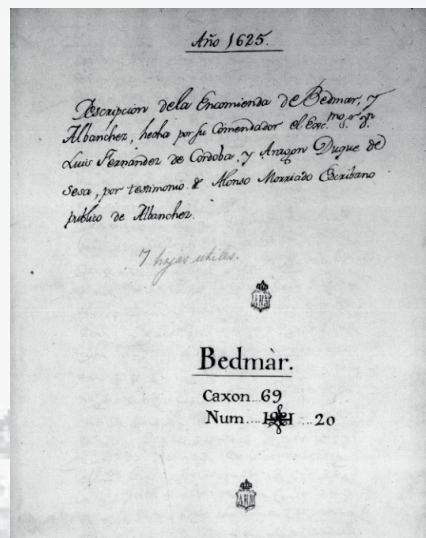 Año 1625.
Descripcion dela Encomienda de Bedmar, y
Albanchez, hecha por su Comendador el Exc.mo s.or Dn.
Luis Fernandez de Cordoba, y Aragon Duque de
Sesa, por testimonio de Alonso Morriado Escribano
publico de Albanchez.
7 hojas utiles.
AHN
Bedmàr.
Caxon..69
Num.... ...20
AHN